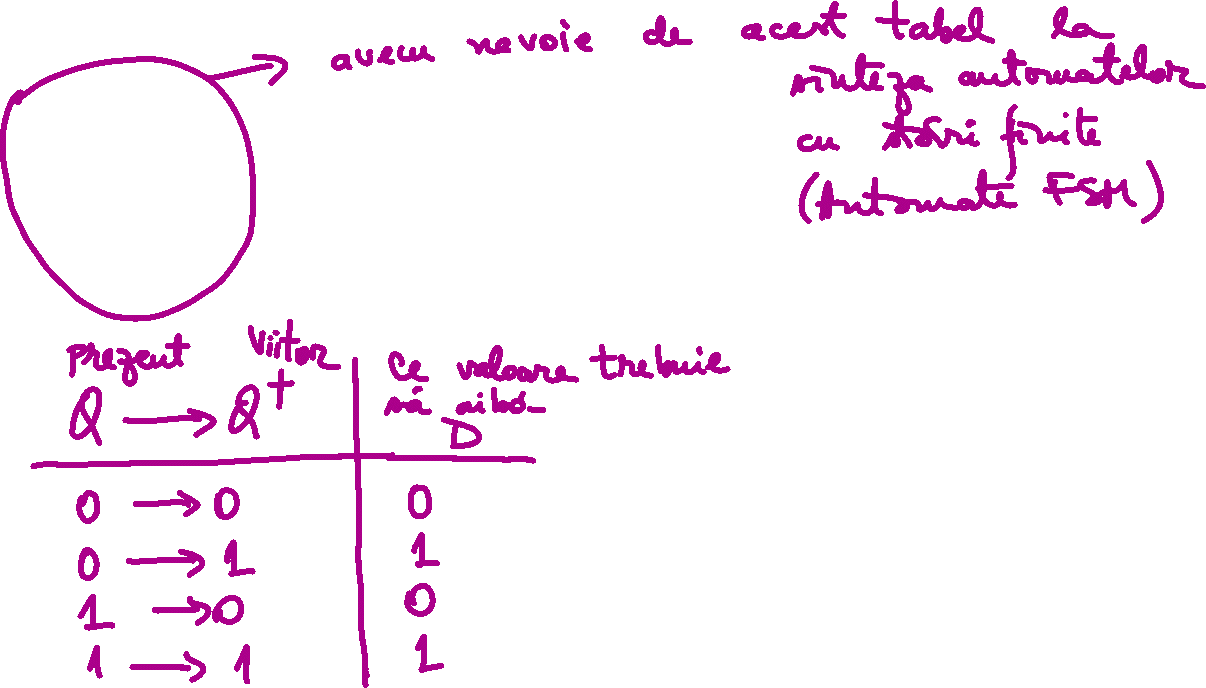 avem nevoie de acest tabel la
sinteza automatelor
cu stări finite
(Automate FSM)
Prezent Viitor
Q → Q⁺
Ce valoare trebuie
să aibă
D
0 → 0 0
0 → 1 1
1 → 0 0
1 → 1 1